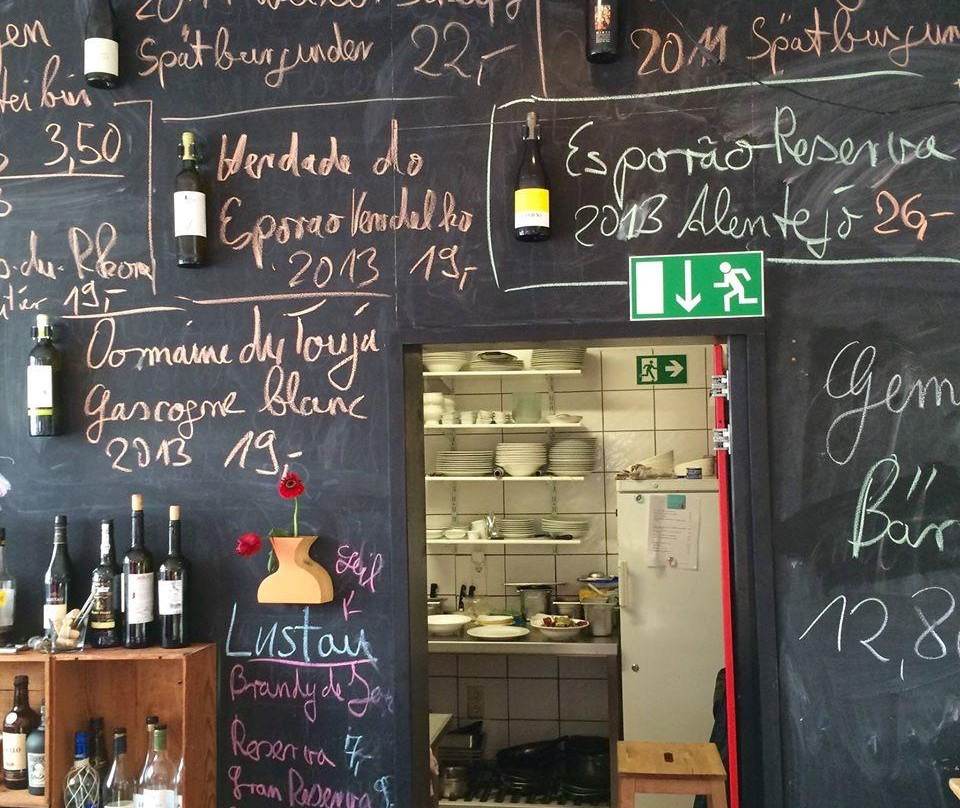 Spätburgunder 22,-
2011 Spätburgun
3,50
Herdade do
Esporao Verdelho
2013 19,-
Esporão Reserva
2013 Alentejo 26,-
19,-
Domaine du Touja
Gascogne blanc
2013 19,-
Gem
Bär
12,8
geil
Lustau
Brandy de Jer
Reserva 7,-
Gran Reserva 9